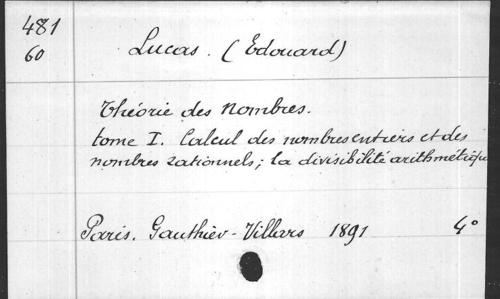 481
60
Lucas. (Edouard)
Théorie des Nombres.
tome I. Calcul des nombres entiers et des
nombres rationnels; la divisibilité arithmétique
Paris. Gauthier-Villars 1891 4°